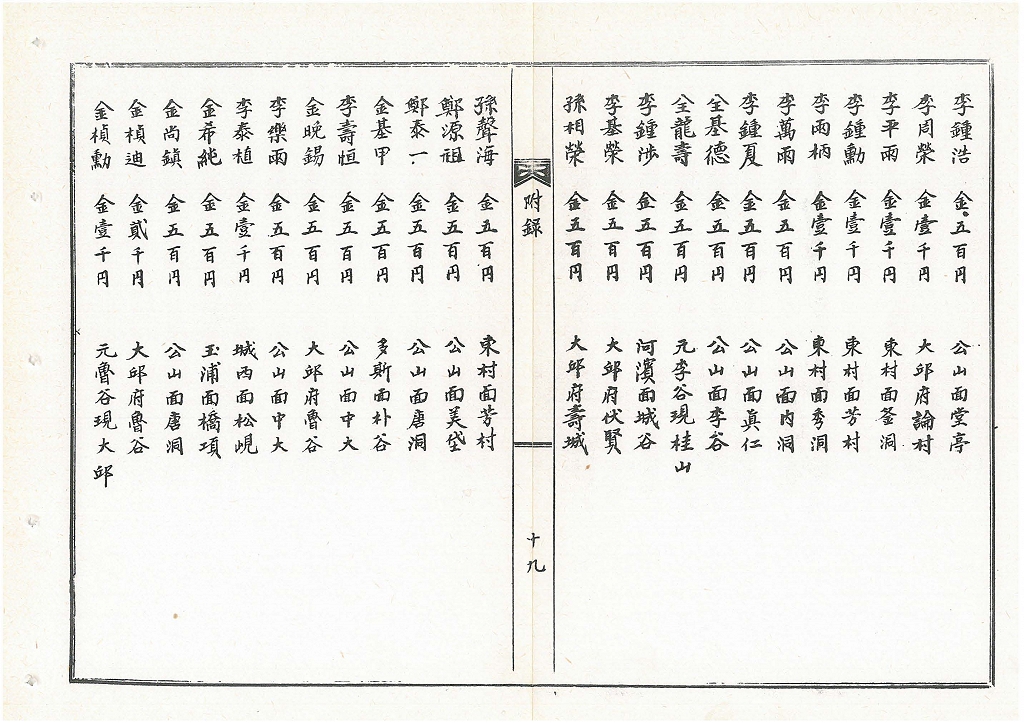 李鍾浩 金五百円 公山面堂亭
李周榮 金壹千円 大邱府論村
李平雨 金壹千円 東村面釜洞
李鍾勳 金壹千円 東村面芳村
李雨柄 金壹千円 東村面秀洞
李萬雨 金五百円 公山面內洞
李鍾夏 金五百円 公山面眞仁
全基德 金五百円 公山面李谷
全龍壽 金五百円 元李谷現桂山
李鍾涉 金五百円 河濱面城谷
李基榮 金五百円 大邱府伏賢
孫相榮 金五百円 大邱府壽城
附録 十九
孫聲海 金五百円 東村面芳村
鄭源祖 金五百円 公山面美岱
鄭泰一 金五百円 公山面唐洞
金基甲 金五百円 多斯面朴谷
李壽恒 金五百円 公山面中大
金晚錫 金五百円 大邱府魯谷
李樂雨 金五百円 公山面中大
李泰植 金壹千円 城西面松峴
金希純 金五百円 玉浦面橋項
金尚鎭 金五百円 公山面唐洞
金楨迪 金貳千円 大邱府魯谷
金楨勳 金壹千円 元魯谷現大邱